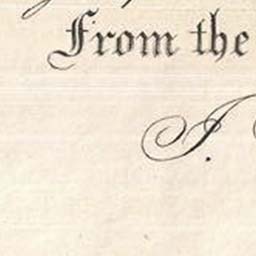 From the
J.